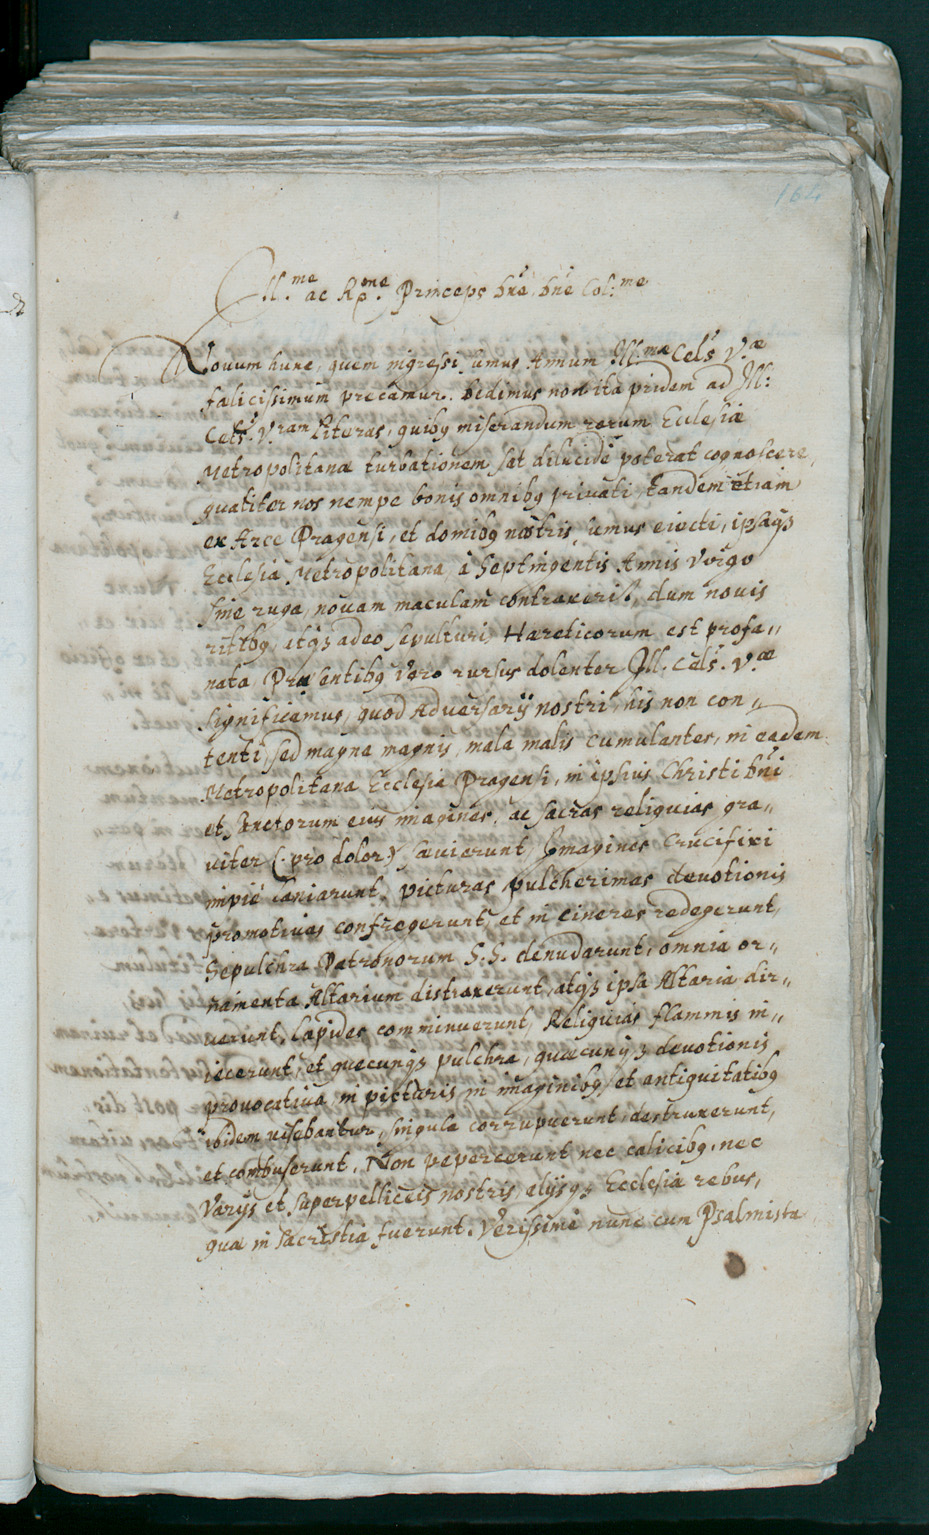 164
Ill.me ac Rme. Princeps Dne, Dne Col:me
Novum hunc, quem ingressi sumus Annum Ill.mæ Cels. V.æ
fælicissimum precamur. Dedimus non ita pridem ad Ill:
Cels. V.ram Literas, quibq miserandum rerum Ecclesiæ
Metropolitanæ turbationem sat dilucidè poterat cognoscere,
qualiter nos nempe bonis omnibq privati, tandem etiam
ex Arce Pragensi, et domibq nostris, sumus eiecti, ipsaqз
Ecclesia Metropolitana, à Septingentis Annis Virgo
sine ruga, novam maculam contraxerit, dum novis
ritibq, atqз adeo sepulturis Hæreticorum est profa„
nata. Præsentibq vero rursus dolenter Ill. Cels. V.æ
significamus, quod Adversarij nostri, his non con„
tenti, sed magna magnis, mala malis cumulantes, in eadem
Metropolitana Ecclesia Pragensi, in ipsius Christi Dni
et Sanctorum eius imagines, ac sacras reliquias gra„
viter (: pro dolor:) sævierunt, Imagines Crucifixi
impiè laniarunt, picturas pulcherimas devotionis
promotivas confregerunt, et in cineres redegerunt,
Sepulchra Patronorum S:S. denudarunt, omnia or„
namenta Altarium distraxerunt, atqз ipsa Altaria dir„
uerunt, Lapides comminuerunt, Reliquias flammis in„
iecerunt, et quæcunqз pulchra, quæcunqз devotionis
provocativa in picturis in imaginibq, et antiquitatibq
ibidem visebantur, singula corrupuerunt, destruxerunt,
et combuserunt. Non pepercerunt nec calicibq, nec
Varijs et superpelliceis nostris, alijsqз Ecclesiæ rebus,
quæ in sacristia fuerunt. Verissimè nunc cum Psalmista